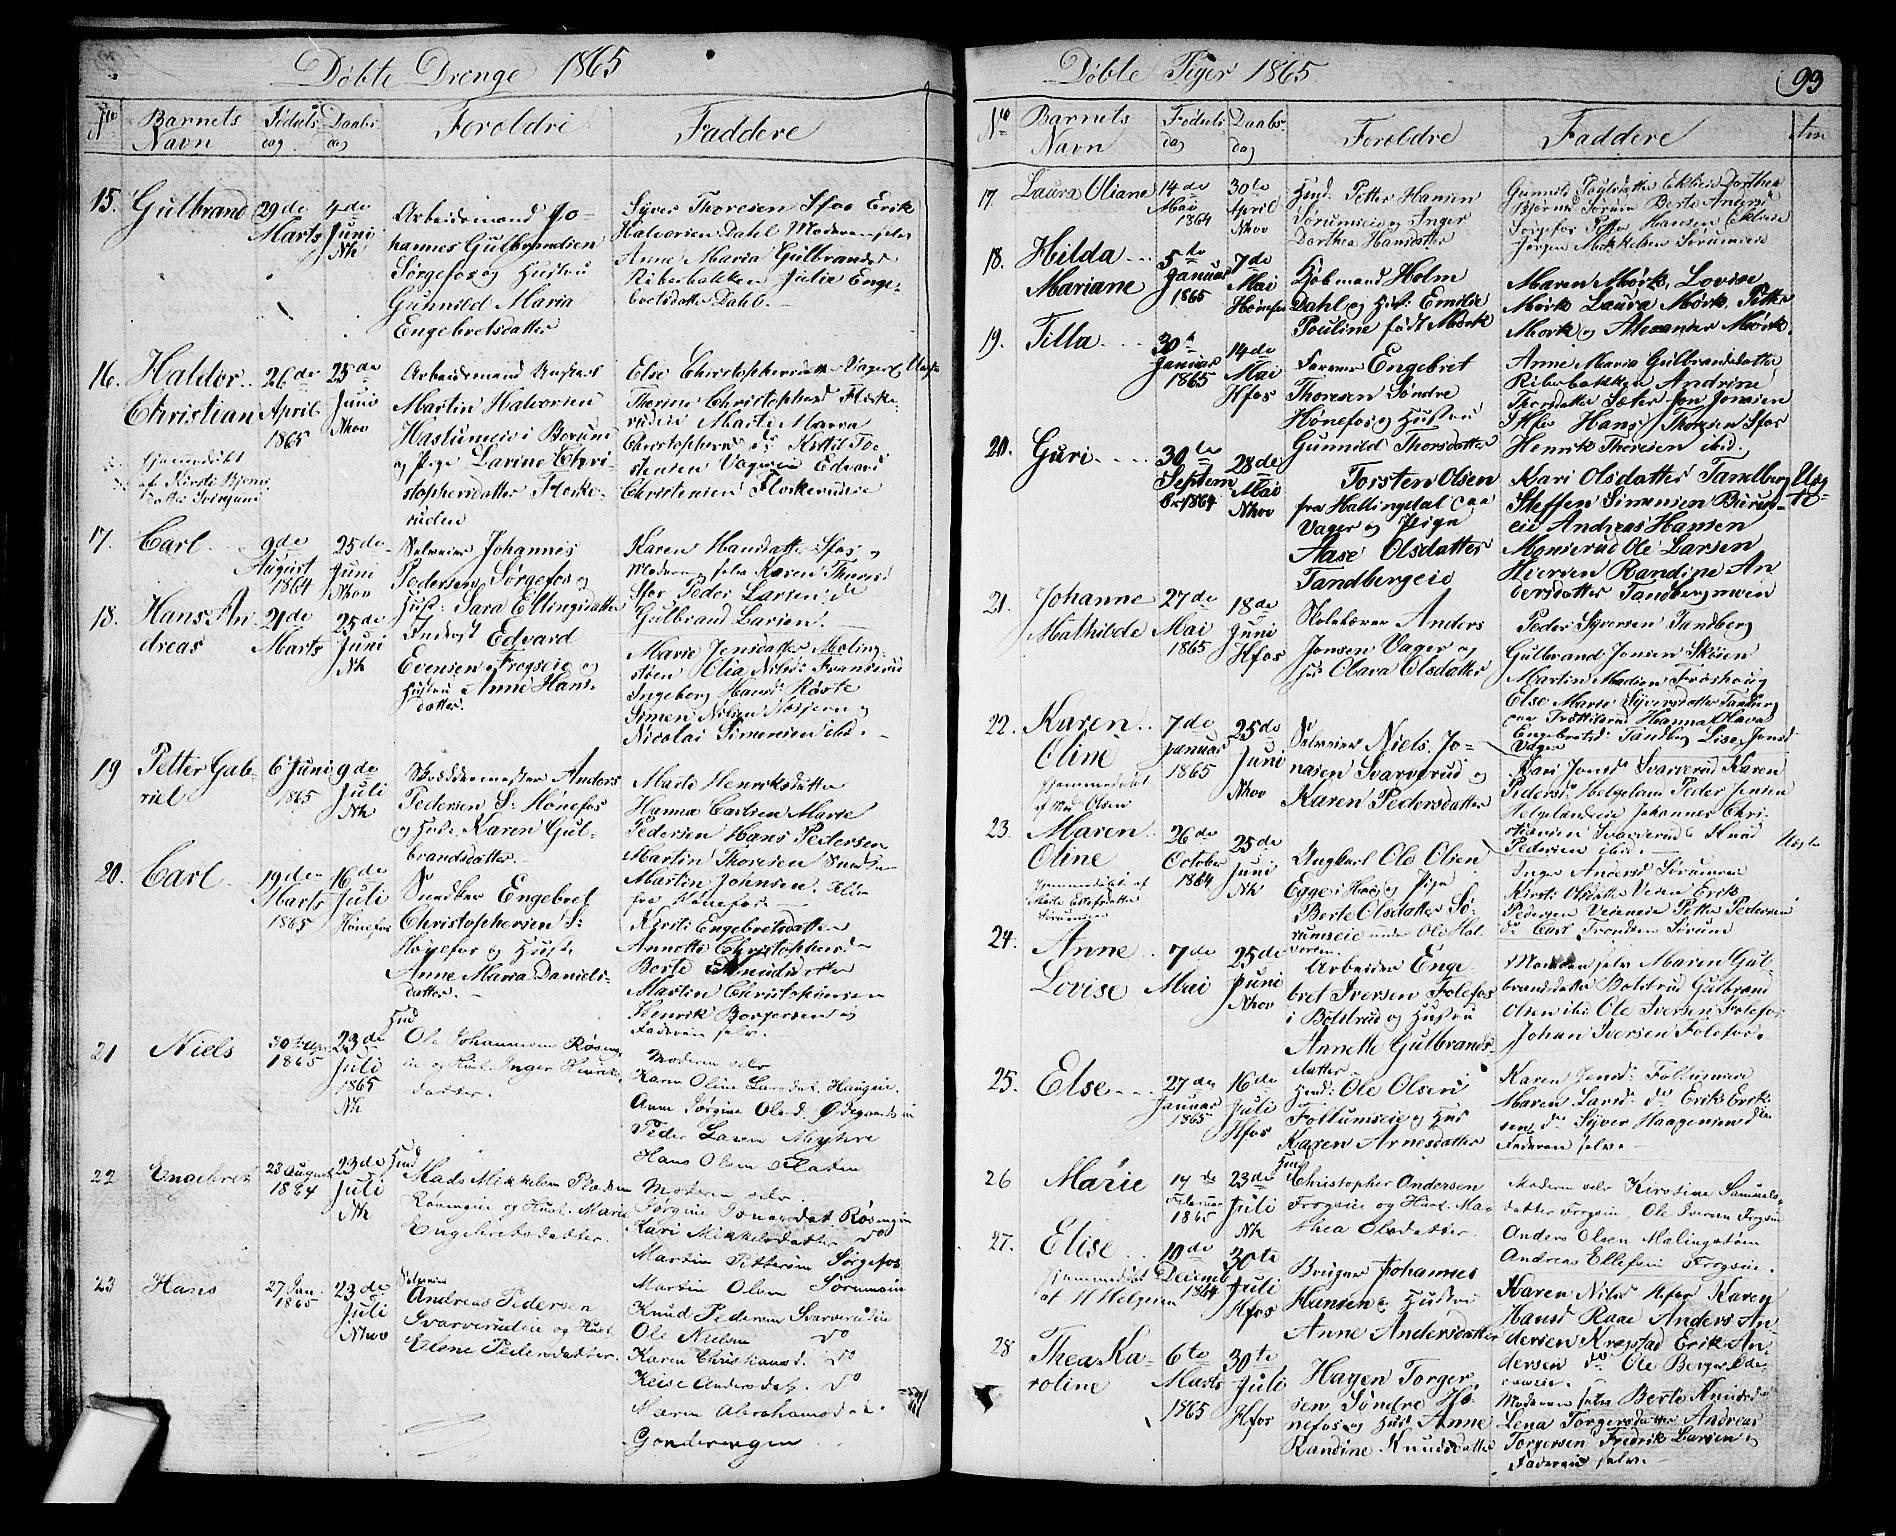 Döbte Drenge 1865
No Barnets Navn
Födsels dag
Daabs dag
Foroldre
Faddere
15. Gulbrand
29de Marts
4de Juni Nk
Arbeidsmand Jo-
hannes Gulbrandsen
Sørgefos og Hustru
Gunnild Maria
Engebretsdatter
Syver Thoresen Sfos Erik
Halvorsen Dahl Moderen selv
Anne Maria Gulbrands
Riberbakken Julia Enge-
bretsdatter Dahl.
16. Haldor
Christian
Hjemmedöbt
af Kirsti Bjørns
datter
26de April 1865
25de Juni Nhov
Arbeidsmand
Martin Halvorsen
i
og Pige Larine Chri-
stophersdatter Floske-
ruden
Else Christophersen Vager
Thorine Christophersd Floske-
rudeie Marte Maria
Christophersd do Kittil To-
stensen Vagereie Edvard
Christensen Floskerudeie
17. Carl
9de August 1864
25de Juni Nhov
Selveier Johannes
Pedersen Sørgefos og
Hust: Sara Ellingsdatter
Karen Hansdatter Sfos og
Moderen selv Karen Thoresd
Sfos Peder Larsen do
Gulbrand Larsen.
18. Hans An
dreas
21de Marts
25de Juni Nk
Inderst Edvard
Evensen Frogseie og
Hustru Anne Hans-
datter.
Marie Jensdatter Maling-
støen Olia Nilsd: Franserud
Ingeborg Hansd: Røste
Simen Nilsen og
Nicolai Simensen ibid.
19 Petter Gab-
riel
6 Juni 1865
9de Juli Nk
Skræddermester Anders
Pedersen S: Hönefos
og Hust: Karen Gul-
brandsdatter.
Marte Henriksdatter
Hanna Carlsen Marie
Pedersen Hans Pedersen
Martin Thoresen
Martin Johnsen. Alle
fra Hönefos
20. Carl
19de Marts 1865
16de Juli Hönefos
Snedker Engebret
Christophersen S:
Hönefos og Hust:
Anne Maria Daniels-
datter.
Kirsti Engebretsdatter
Annette Christophersd
Berte Knudsdatter
Martin Christophersen
Henrik Borgersen og
Faderen selv.
21 Niels
1865
23de Juli 1865 Nk
Hmd
Ole Johannesen Røsen-
gen og Hust. Inger Henriks-
datter.
Moderen selv
Karen Oline Larsdat. Haugeie.
Anne Jørgine Olsd. Ødegaardseie
Peder Larsen
Hans Olsen
22 Engebret
23 August 1864
23de Juli Nk
Hmd
Mads Mikkelsen
Røsengeie og Hust. Marie
Engebretsdatter.
Moderen selv.
Jørgine Jonasdat. Røsengen
Kari Mikkelsdatter do
Martin Pettersen Sørgefos
Martin Olsen Sørumseie
23 Hans
27 Jan. 1865
23de Juli Nhov
Selveier
Andreas Pedersen
Svarverudeie og Hust.
Elene Pedersdatter.
Knud Pedersen Svarverudeie
Ole Nielsen do
Karen Christiansd. do
Keise Andersdat. do
Maren Abrahamsdat.
Gonderengen.
Döbte Piger 1865
93
No Barnets Navn
Födsels dag
Daabs dag
Foroldre
Faddere
Anm
17. Laura Oliane
14de Mai 1864
30te April Nhov
Hmd: Petter Hansen
Sørumseie og Inger
Dorthea Hansdatter
Gunnild Paulsdatter Eklien Dorthea
Bjørnsd Sørum Berte Andersd
Sørgefos Petter Hansen Eklien
Jørgen Mikkelsen Sørumseie
18. Hilda
Mariane
5te Januar 1865
7de Mai Hönefos
Kjöbmand Holm
Dahl og Hust: Emilie
Pouline født Mørk
Maren Mørk, Lovise
Mørk Laura Mørk, Petter
Mørk og Alexander Mørk.
19. Tilla
30te Januar 1865
14de Mai Hfos
Farver Engebret
Thoresen Søndre
Hönefos og Hustru
Gunnild Thorsdatter
Anne Maria Gulbrandsdatter
Riberbakken Andrine
Thorsdatter Sæter Jon Jonsen
Hfos Hans Thoresen Sfos
Henrik Thoresen ibid.
20. Guri
30te Septem br 1864
28de Mai Nhov
Torsten Olsen
fra Hallingdal
Vager og Pige
Aase Olsdatter
Tandbergeie
Kari Olsdatter Tandberg
Steffen Simensen Burum-
eie Andreas Hansen
Monserud Ole Larsen
Hiersen Randine An
dersdatter Tandbergmoen
Uæg
te
21. Johanne
Mathilde
27de Mai 1865
18de Juni Hfos
Skolelærer Anders
Jonsen Vager og
Hus Olava Olsdatter
Peder Syversen Tandberg
Gulbrand Jonsen Skøien
Martin Madsen Frøshoug
Else Marie Syversdatter Tandberg
Hanna Olava
Engebretsd: Tandberg Lise Jonsd
Vager
22. Karen
Oline
Hjemmedöbt
af Olsen
7de Januar 1865
25de Juni Nhov
Selveier Niels Jo-
nasen Svarverud og
Karen Pedersdatter
Kari Jonsd Svarverud Karen
Pedersd: Helgeland Peder Jensen
Helgelandeie Johannes Chri-
stiansen Svarverud Knud
Pedersen ibid.
23. Maren
Oline
Hjemmedöbt af
Marte Ellefsdatter
26de October 1864
25de Juni Nk
Ungkarl Ole Olsen
Egge i og Pige
Berte Olsdatter Sö-
rumseie under Ole Hal-
vorsen.
Inger Andersd Sørumseie
Kirsti Olsdatter Veien Erik
Pedersen Veieneie Petter Pedersen
do Carl Trondsen Sørum
Uægte
24. Anne
Lovise
7de Mai
25de Juni Nhov
Arbeider Enge
bret Iversen Folefos
i Bolstrud og Hustru
Annette Gulbrands-
datter.
Moderen selv Maren Gul-
brandsdatter Bolstrud Gulbrand
Olsen ibid Ole Iversen Folefos
Johan Iversen Folefos.
25. Else
27de Januar 1865
16de Juli Hfos
Hmd: Ole Olsen
Follumseie og Hus
Karen Arnesdatter
Karen Jensd: Follumseie
Maren Larsd: do Erik Erik-
sen do Syver Haagensen do
Faderen selv.
26 Marie
Februar 1865
23de Juli Nk
Hmd
Christopher Andersen
Frogseie og Hust. Ma-
thea Olsdatter.
Moderen selv Kirstine Samuels-
datter Frogseie, Ole Iversen Frogseie
Anders Olsen Malingstøen
Andreas Ellefsen Frogseie.
27. Elise
Hjemmedöbt
af H Helgesen
10de Decemb 1864
30te Juli Hfos
Bruger Johannes
Hansen og Hustru
Anne Andersdatter
Karen Nilsd Hfos Karen
Hansd Raae Anders An-
dersen Kragstad Erik An-
dersen do Ole Berger
Thea Ka-
roline
28
6te Marts 1865
30te Juli Hfos
Hagen Torger
sen Søndre Hö-
nefos og Hus Anne
Randine Knudsdatter
Moderen selv Berte Knudsd
Lena Torgersdatter Andreas
Torgersen Fredrik Larsen og
Faderen selv.